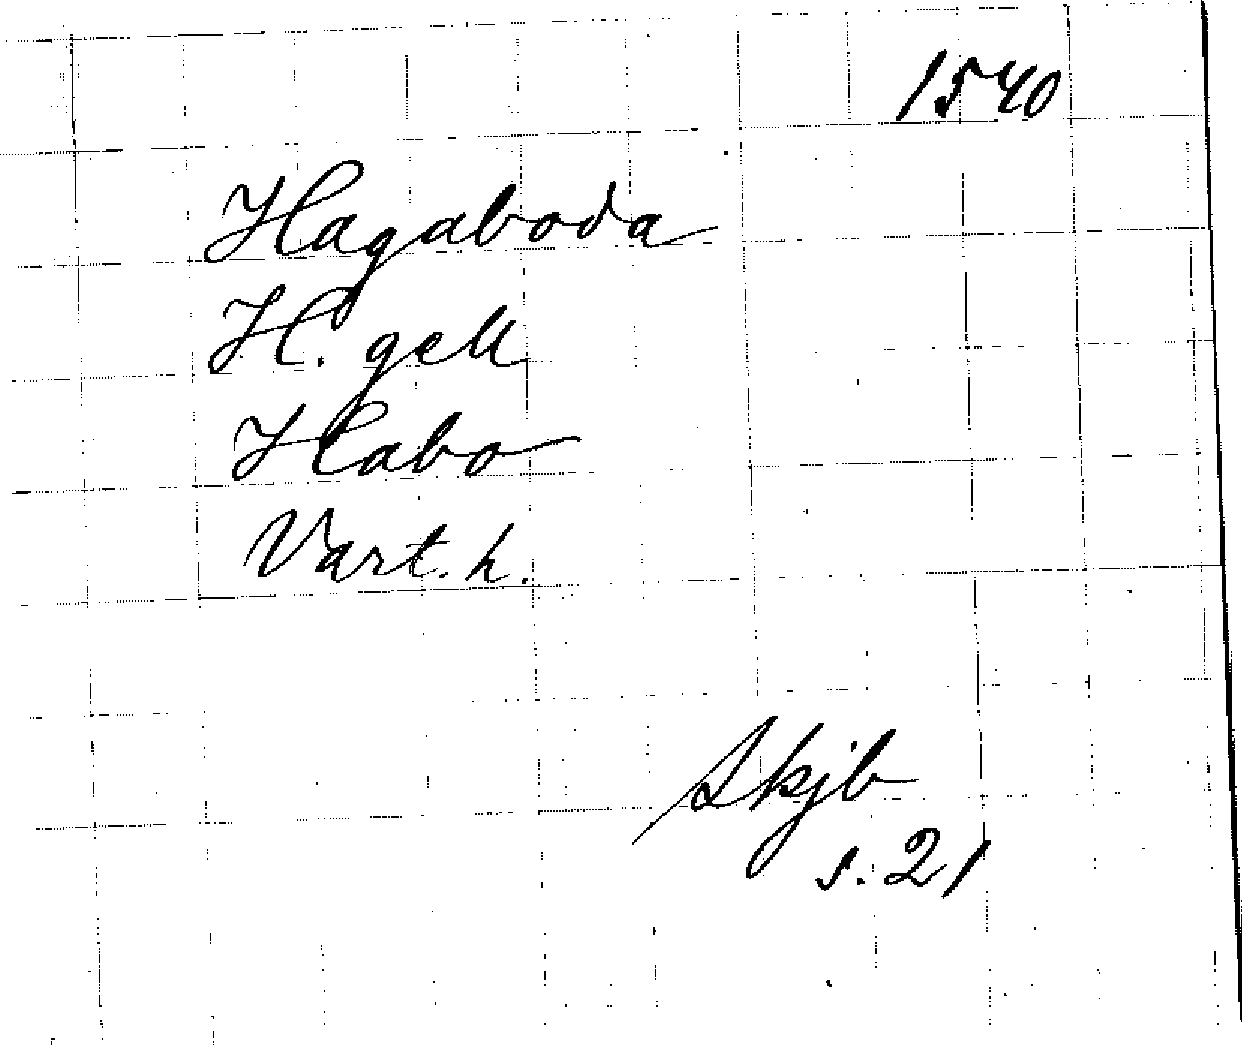 1540
Hagaboda
H. gell
Habo
Vart. h.
Skjb
s. 21